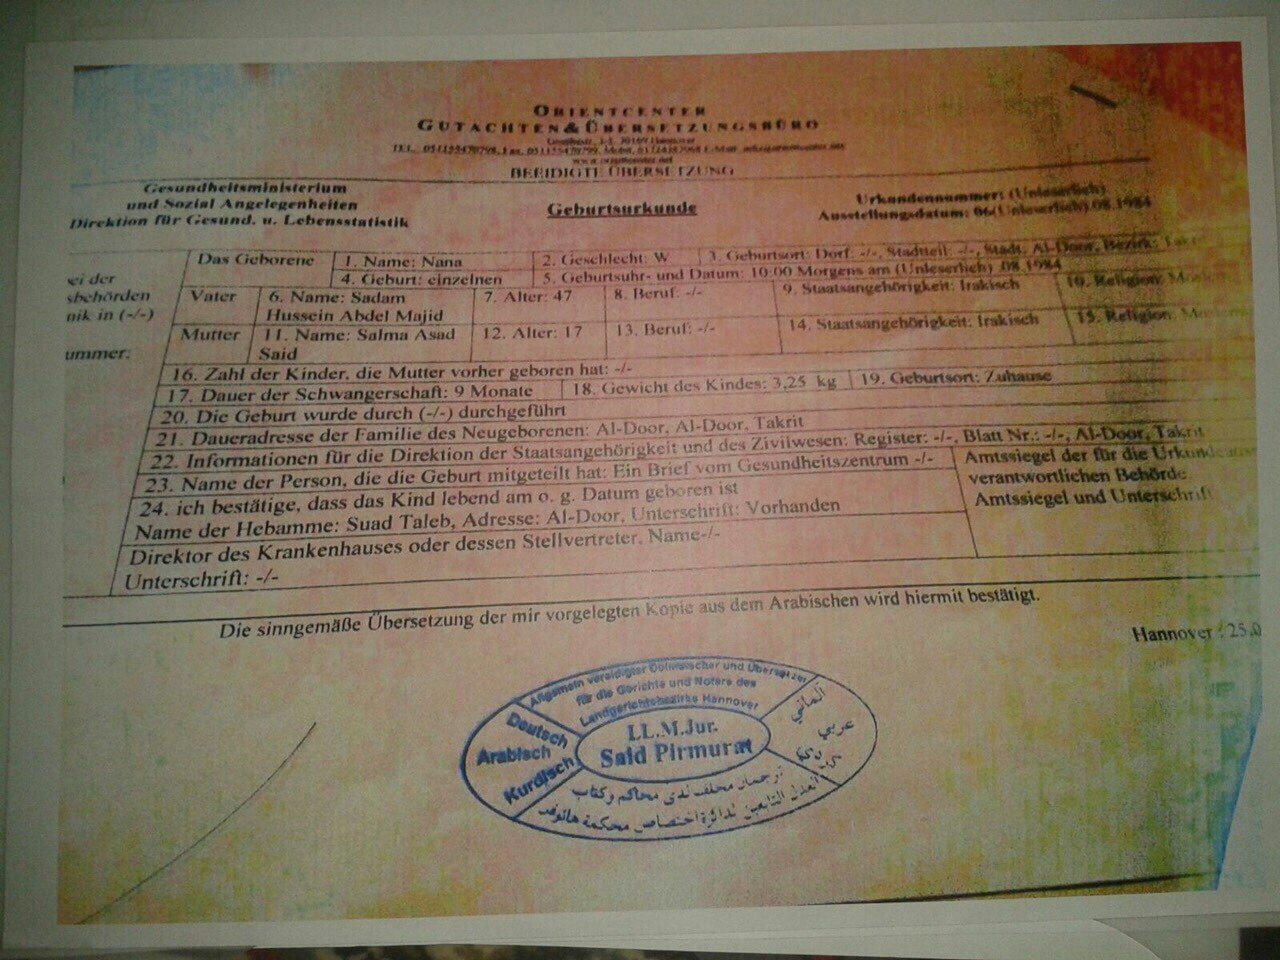 ORIENTCENTER
GUTACHTEN&ÜBERSETZUNGSBÜRO
BEEIDIGTE ÜBERSETZUNG
Gesundheitsministerium
und Sozial Angelegenheiten
Direktion für Gesund. u. Lebensstatistik
Geburtsurkunde
Urkundennummer: (Unleserlich)
Ausstellungsdatum: 06(Unleserlich).08.1984
ei der
sbehörden
nik in (-/-)
ummer:
Das Geborene
1. Name: Nana
2. Geschlecht: W
3. Geburtsort: Dorf. -/-, Stadtteil: -/-, Stadt: Al-Door, Bezirk: Takrit
4. Geburt: einzelnen
5. Geburtsuhr- und Datum: 10:00 Morgens am (Unleserlich) .08.1984
Vater
6. Name: Sadam
Hussein Abdel Majid
7. Alter: 47
8. Beruf: -/-
9. Staatsangehörigkeit: Irakisch
10. Religion:
Mutter
11. Name: Salma Asad
Said
12. Alter: 17
13. Beruf: -/-
14. Staatsangehörigkeit: Irakisch
15. Religion:
16. Zahl der Kinder, die Mutter vorher geboren hat: -/-
17. Dauer der Schwangerschaft: 9 Monate
18. Gewicht des Kindes: 3,25 kg
19. Geburtsort: Zuhause
20. Die Geburt wurde durch (-/-) durchgeführt
21. Daueradresse der Familie des Neugeborenen: Al-Door, Al-Door, Takrit
22. Informationen für die Direktion der Staatsangehörigkeit und des Zivilwesen: Register: -/-, Blatt Nr.: -/-, Al-Door, Takrit
23. Name der Person, die die Geburt mitgeteilt hat: Ein Brief vom Gesundheitszentrum -/-
24. ich bestätige, dass das Kind lebend am o. g. Datum geboren ist
Name der Hebamme: Suad Taleb, Adresse: Al-Door, Unterschrift: Vorhanden
Direktor des Krankenhauses oder dessen Stellvertreter, Name-/-
Unterschrift: -/-
Amtssiegel der für die
verantwortlichen Behörde
Amtssiegel und Unterschrift
Die sinngemäße Übersetzung der mir vorgelegten Kopie aus dem Arabischen wird hiermit bestätigt.
Hannover : 25.0
Allgemein vereidigter Dolmetscher und Übersetzer
für die Gerichte und Notare des
Landgerichtsbezirks Hannover
Deutsch
Arabisch
Kurdisch
LL.M.Jur.
Said Pirmurat
ألماني
عربي
كردي
ترجمان محلف لدى محاكم وكتاب
العدل التابعين لدائرة اختصاص محكمة هانوفر